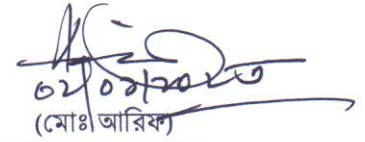 ০২/০২/২০২৩
(মোঃ আরিফ)